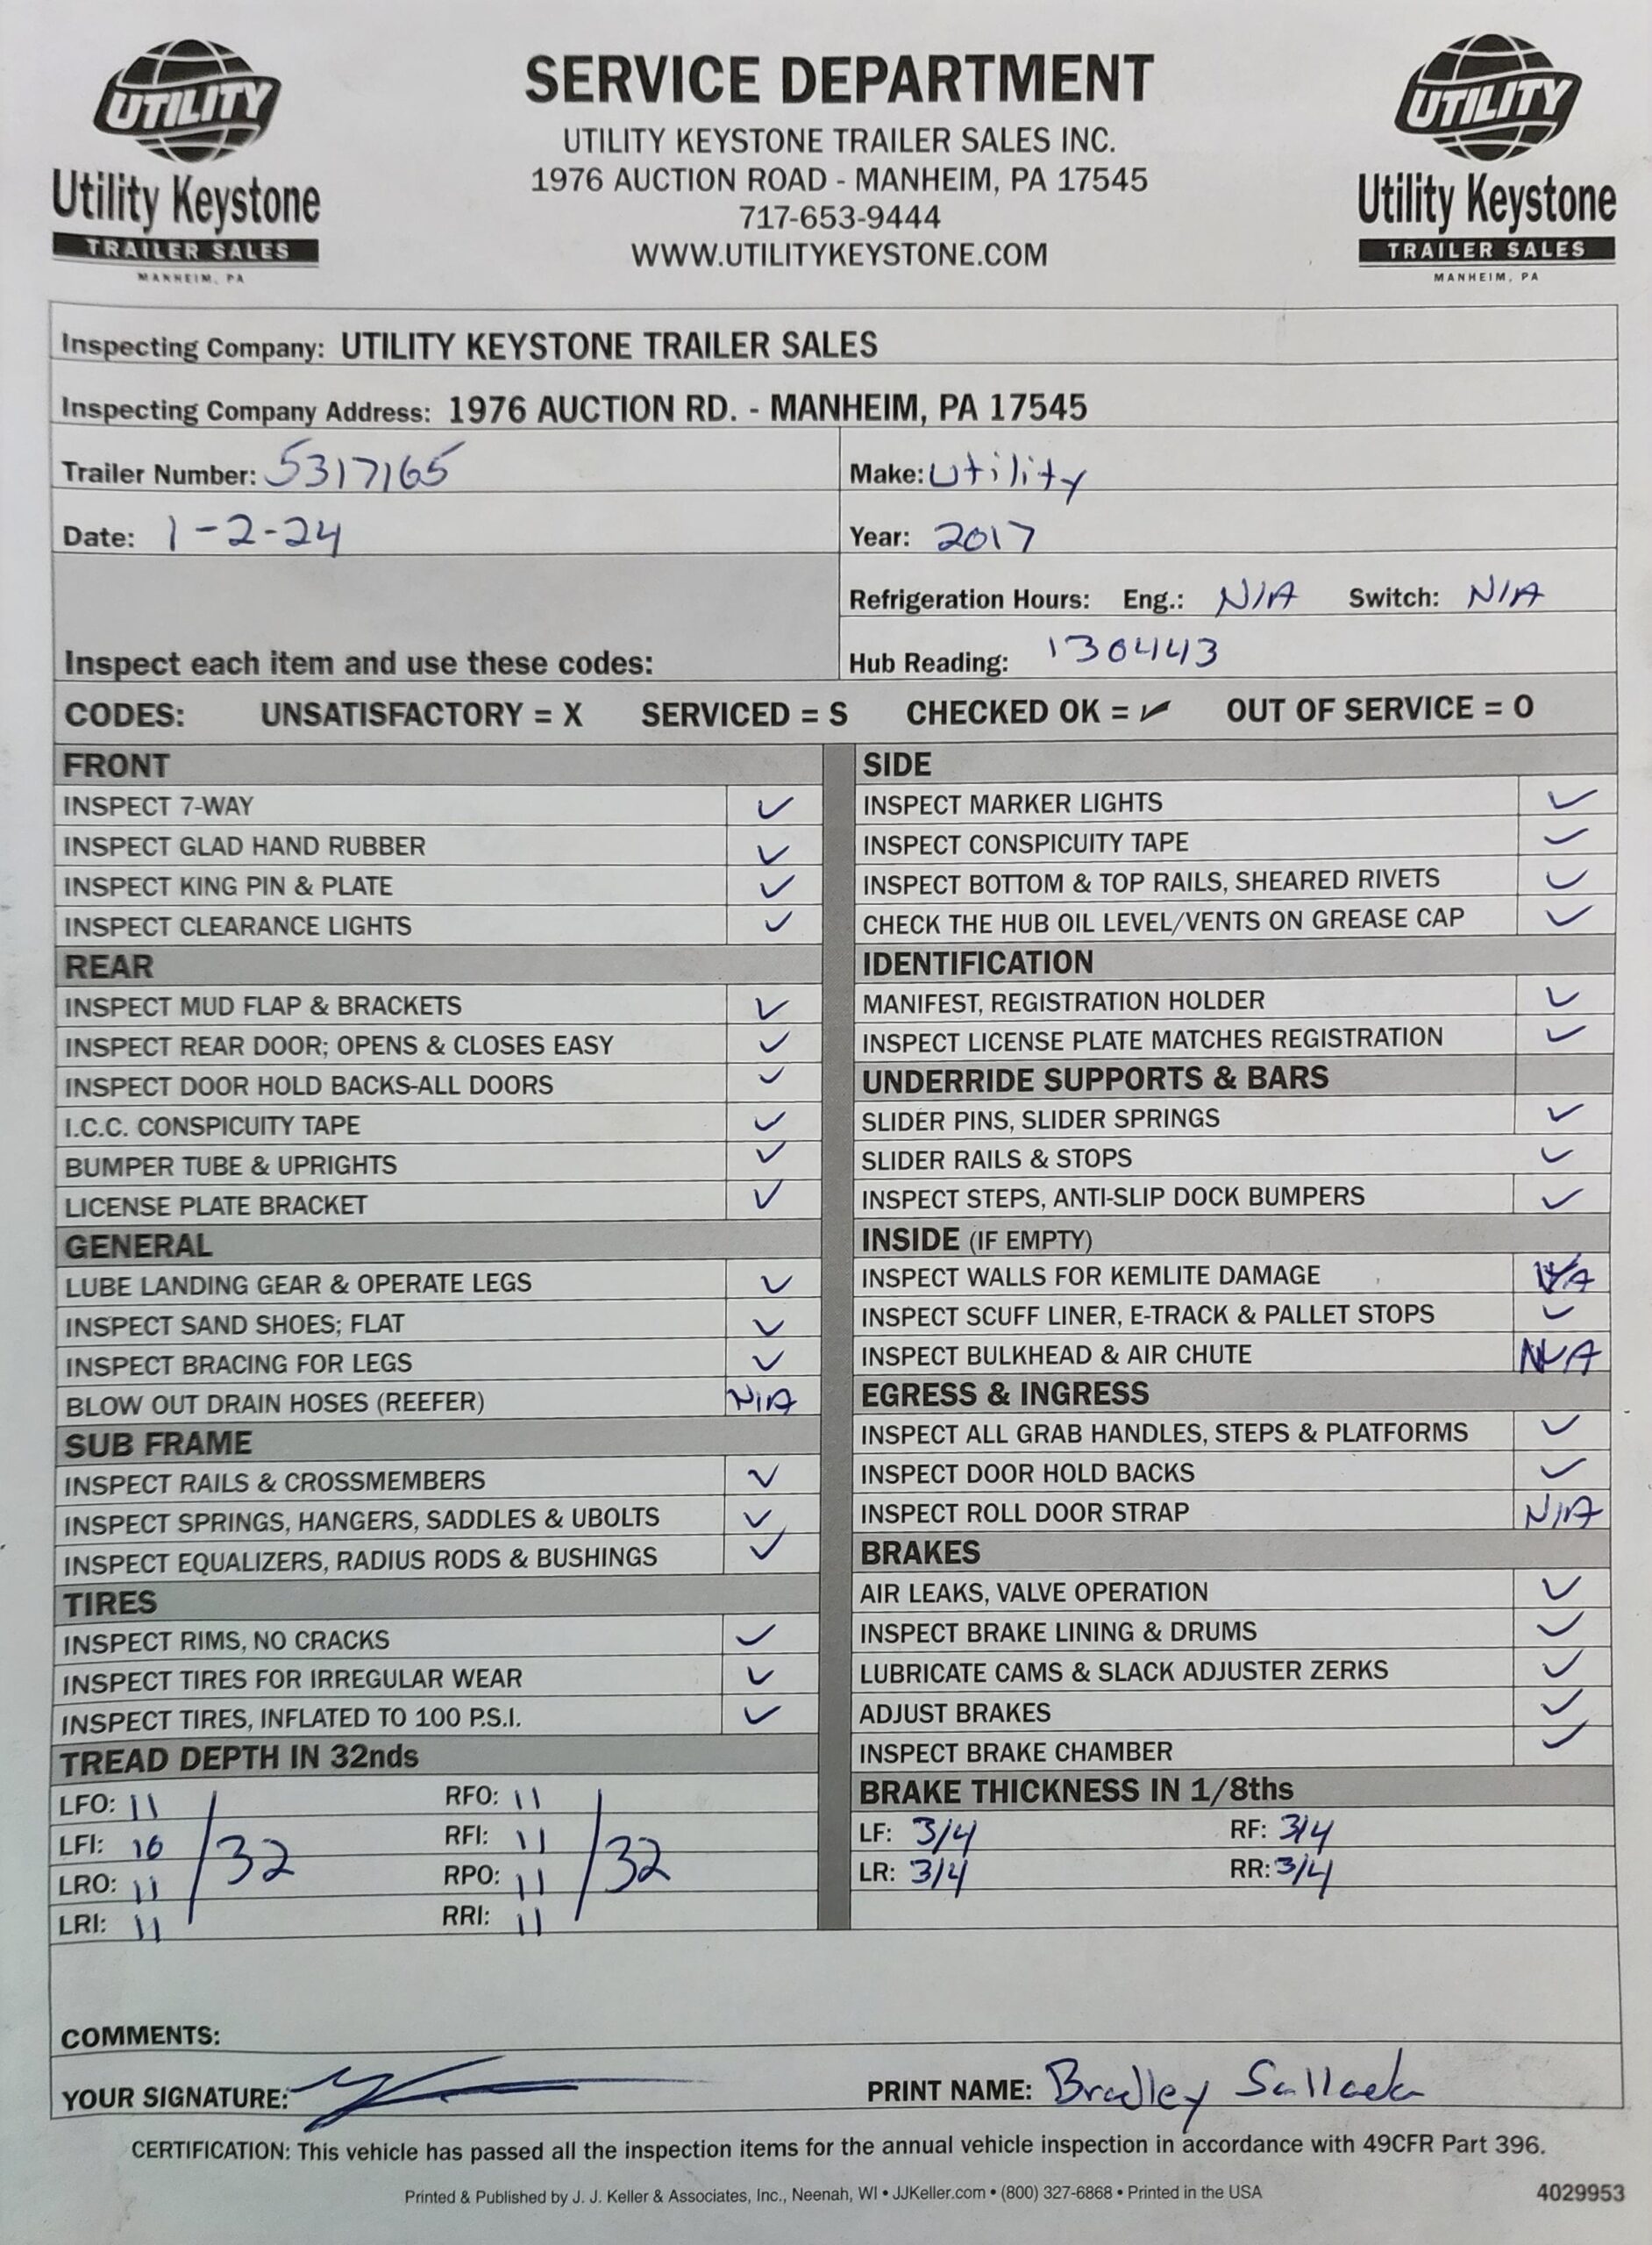 UTILITY
Utility Keystone
TRAILER SALES
MANHEIM, PA
SERVICE DEPARTMENT
UTILITY KEYSTONE TRAILER SALES INC.
1976 AUCTION ROAD - MANHEIM, PA 17545
717-653-9444
WWW.UTILITYKEYSTONE.COM
UTILITY
Utility Keystone
TRAILER SALES
MANHEIM, PA
Inspecting Company: UTILITY KEYSTONE TRAILER SALES
Inspecting Company Address: 1976 AUCTION RD. - MANHEIM, PA 17545
Trailer Number: 5317165
Make: Utility
Date: 1-2-24
Year: 2017
Refrigeration Hours: Eng.: N/A Switch: N/A
Inspect each item and use these codes:
Hub Reading: 130443
CODES: UNSATISFACTORY = X SERVICED = S CHECKED OK = ✓ OUT OF SERVICE = O
FRONT
INSPECT 7-WAY ✓
INSPECT GLAD HAND RUBBER ✓
INSPECT KING PIN & PLATE ✓
INSPECT CLEARANCE LIGHTS ✓
REAR
INSPECT MUD FLAP & BRACKETS ✓
INSPECT REAR DOOR; OPENS & CLOSES EASY ✓
INSPECT DOOR HOLD BACKS-ALL DOORS ✓
I.C.C. CONSPICUITY TAPE ✓
BUMPER TUBE & UPRIGHTS ✓
LICENSE PLATE BRACKET ✓
GENERAL
LUBE LANDING GEAR & OPERATE LEGS ✓
INSPECT SAND SHOES; FLAT ✓
INSPECT BRACING FOR LEGS ✓
BLOW OUT DRAIN HOSES (REEFER) N/A
SUB FRAME
INSPECT RAILS & CROSSMEMBERS ✓
INSPECT SPRINGS, HANGERS, SADDLES & UBOLTS ✓
INSPECT EQUALIZERS, RADIUS RODS & BUSHINGS ✓
TIRES
INSPECT RIMS, NO CRACKS ✓
INSPECT TIRES FOR IRREGULAR WEAR ✓
INSPECT TIRES, INFLATED TO 100 P.S.I. ✓
TREAD DEPTH IN 32nds
LFO: 11 RFO: 11
LFI: 10 /32 RFI: 11 /32
LRO: 11 RPO: 11
LRI: 11 RRI: 11
SIDE
INSPECT MARKER LIGHTS ✓
INSPECT CONSPICUITY TAPE ✓
INSPECT BOTTOM & TOP RAILS, SHEARED RIVETS ✓
CHECK THE HUB OIL LEVEL/VENTS ON GREASE CAP ✓
IDENTIFICATION
MANIFEST, REGISTRATION HOLDER ✓
INSPECT LICENSE PLATE MATCHES REGISTRATION ✓
UNDERRIDE SUPPORTS & BARS
SLIDER PINS, SLIDER SPRINGS ✓
SLIDER RAILS & STOPS ✓
INSPECT STEPS, ANTI-SLIP DOCK BUMPERS ✓
INSIDE (IF EMPTY)
INSPECT WALLS FOR KEMLITE DAMAGE N/A
INSPECT SCUFF LINER, E-TRACK & PALLET STOPS ✓
INSPECT BULKHEAD & AIR CHUTE N/A
EGRESS & INGRESS
INSPECT ALL GRAB HANDLES, STEPS & PLATFORMS ✓
INSPECT DOOR HOLD BACKS ✓
INSPECT ROLL DOOR STRAP N/A
BRAKES
AIR LEAKS, VALVE OPERATION ✓
INSPECT BRAKE LINING & DRUMS ✓
LUBRICATE CAMS & SLACK ADJUSTER ZERKS ✓
ADJUST BRAKES ✓
INSPECT BRAKE CHAMBER ✓
BRAKE THICKNESS IN 1/8ths
LF: 3/4 RF: 3/4
LR: 3/4 RR: 3/4
COMMENTS:
YOUR SIGNATURE:
PRINT NAME: Bradley
CERTIFICATION: This vehicle has passed all the inspection items for the annual vehicle inspection in accordance with 49CFR Part 396.
Printed & Published by J. J. Keller & Associates, Inc., Neenah, WI • JJKeller.com • (800) 327-6868 • Printed in the USA
4029953